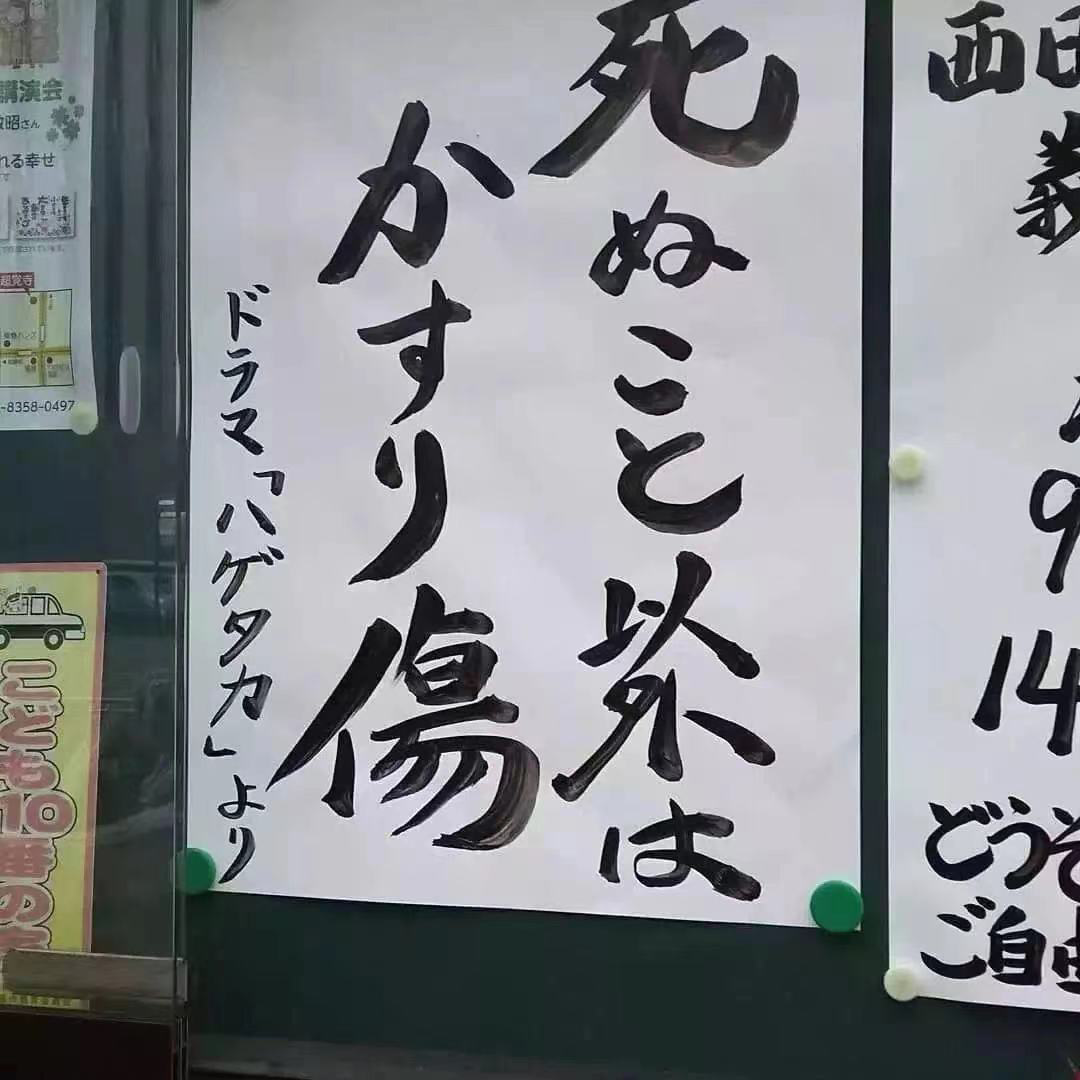 死ぬこと以外は
かすり傷
ドラマ「ハゲタカ」より
講演会
昭さん
れる幸せ
超覚寺
-8358-0497
こども10番の
西田
義
9
14
どうぞ
ご自由